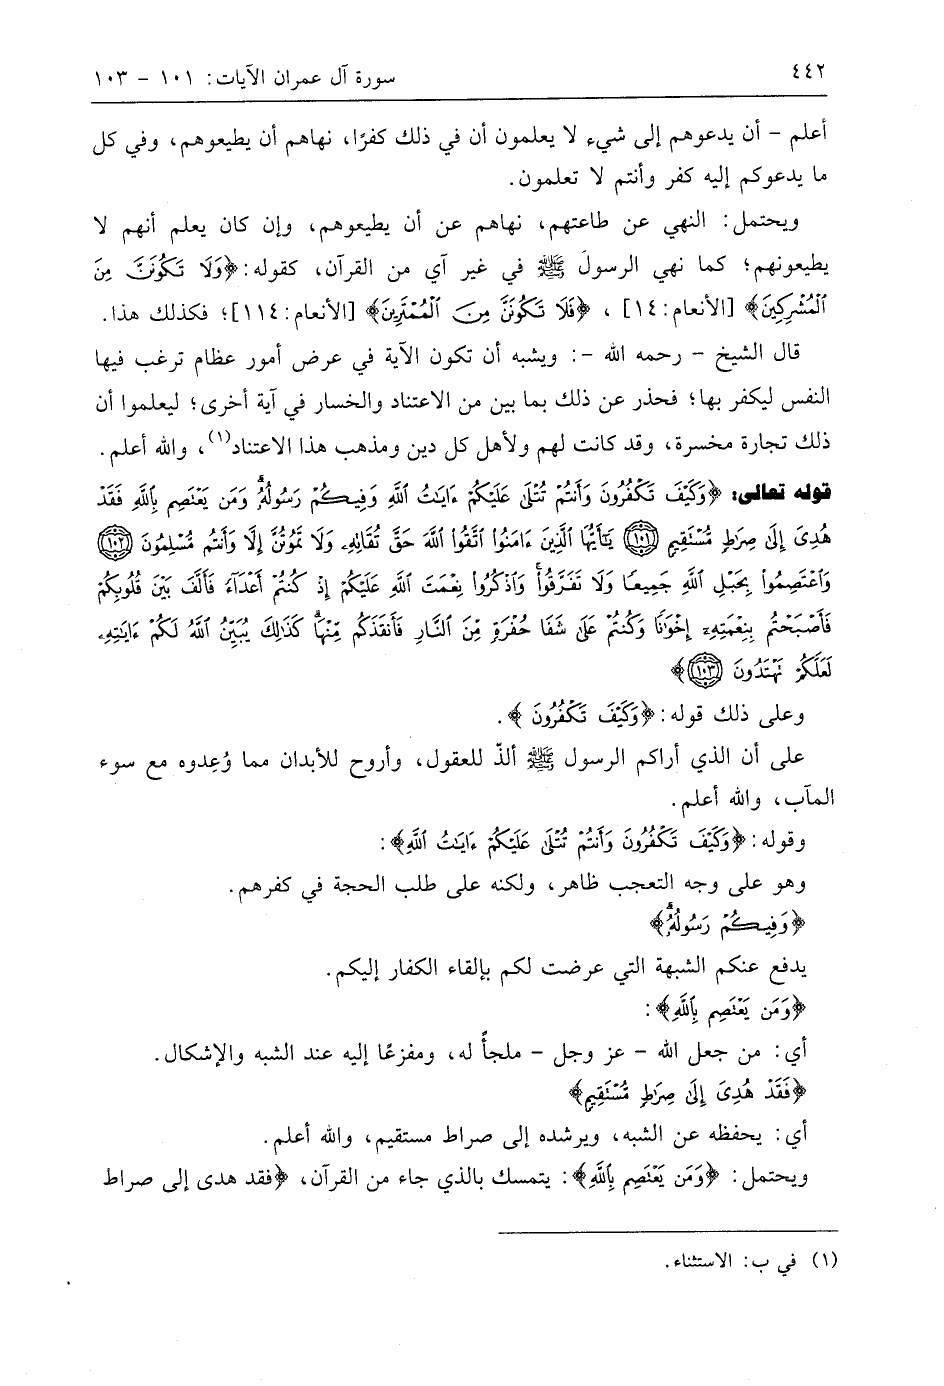 ٤٤٢
سورة آل عمران الآيات: ١٠١ - ١٠٣
أعلم - أن يدعوهم إلى شيء لا يعلمون أن في ذلك كفرًا، نهاهم أن يطيعوهم، وفي كل
ما يدعوكم إليه كفر وأنتم لا تعلمون.
ويحتمل: النهي عن طاعتهم، نهاهم عن أن يطيعوهم، وإن كان يعلم أنهم لا
يطيعونهم؛ كما نهي الرسولَ ﷺ في غير آي من القرآن، كقوله: ﴿وَلَا تَكُونَنَّ مِنَ
ٱلْمُشْرِكِينَ﴾ [الأنعام: ١٤] ، ﴿فَلَا تَكُونَنَّ مِنَ ٱلْمُمْتَرِينَ﴾ [الأنعام: ١١٤]؛ فكذلك هذا.
قال الشيخ - رحمه الله -: ويشبه أن تكون الآية في عرض أمور عظام ترغب فيها
النفس ليكفر بها؛ فحذر عن ذلك بما بين من الاعتناد والخسار في آية أخرى؛ ليعلموا أن
ذلك تجارة مخسرة، وقد كانت لهم ولأهل كل دين ومذهب هذا الاعتناد(١)، والله أعلم.
قوله تعالى: ﴿وَكَيْفَ تَكْفُرُونَ وَأَنتُمْ تُتْلَىٰ عَلَيْكُمْ ءَايَٰتُ ٱللَّهِ وَفِيكُمْ رَسُولُهُۥۗ وَمَن يَعْتَصِم بِٱللَّهِ فَقَدْ
هُدِىَ إِلَىٰ صِرَٰطٍ مُّسْتَقِيمٍ ١٠١ يَٰٓأَيُّهَا ٱلَّذِينَ ءَامَنُوا۟ ٱتَّقُوا۟ ٱللَّهَ حَقَّ تُقَاتِهِۦ وَلَا تَمُوتُنَّ إِلَّا وَأَنتُم مُّسْلِمُونَ ١٠٢
وَٱعْتَصِمُوا۟ بِحَبْلِ ٱللَّهِ جَمِيعًا وَلَا تَفَرَّقُوا۟ۚ وَٱذْكُرُوا۟ نِعْمَتَ ٱللَّهِ عَلَيْكُمْ إِذْ كُنتُمْ أَعْدَآءً فَأَلَّفَ بَيْنَ قُلُوبِكُمْ
فَأَصْبَحْتُم بِنِعْمَتِهِۦٓ إِخْوَٰنًا وَكُنتُمْ عَلَىٰ شَفَا حُفْرَةٍ مِّنَ ٱلنَّارِ فَأَنقَذَكُم مِّنْهَاۗ كَذَٰلِكَ يُبَيِّنُ ٱللَّهُ لَكُمْ ءَايَٰتِهِۦ
لَعَلَّكُمْ تَهْتَدُونَ ١٠٣﴾
وعلى ذلك قوله: ﴿وَكَيْفَ تَكْفُرُونَ ﴾.
على أن الذي أراكم الرسول ﷺ ألذّ للعقول، وأروح للأبدان مما وُعِدوه مع سوء
المآب، والله أعلم.
وقوله: ﴿وَكَيْفَ تَكْفُرُونَ وَأَنتُمْ تُتْلَىٰ عَلَيْكُمْ ءَايَٰتُ ٱللَّهِ﴾:
وهو على وجه التعجب ظاهر، ولكنه على طلب الحجة في كفرهم.
﴿وَفِيكُمْ رَسُولُهُۥۗ﴾
يدفع عنكم الشبهة التي عرضت لكم بإلقاء الكفار إليكم.
﴿وَمَن يَعْتَصِم بِٱللَّهِ﴾:
أي: من جعل الله - عز وجل - ملجأً له، ومفزعًا إليه عند الشبه والإشكال.
﴿فَقَدْ هُدِىَ إِلَىٰ صِرَٰطٍ مُّسْتَقِيمٍ﴾
أي: يحفظه عن الشبه، ويرشده إلى صراط مستقيم، والله أعلم.
ويحتمل: ﴿وَمَن يَعْتَصِم بِٱللَّهِ﴾: يتمسك بالذي جاء من القرآن، ﴿فقد هدى إلى صراط
(١) في ب: الاستثناء.